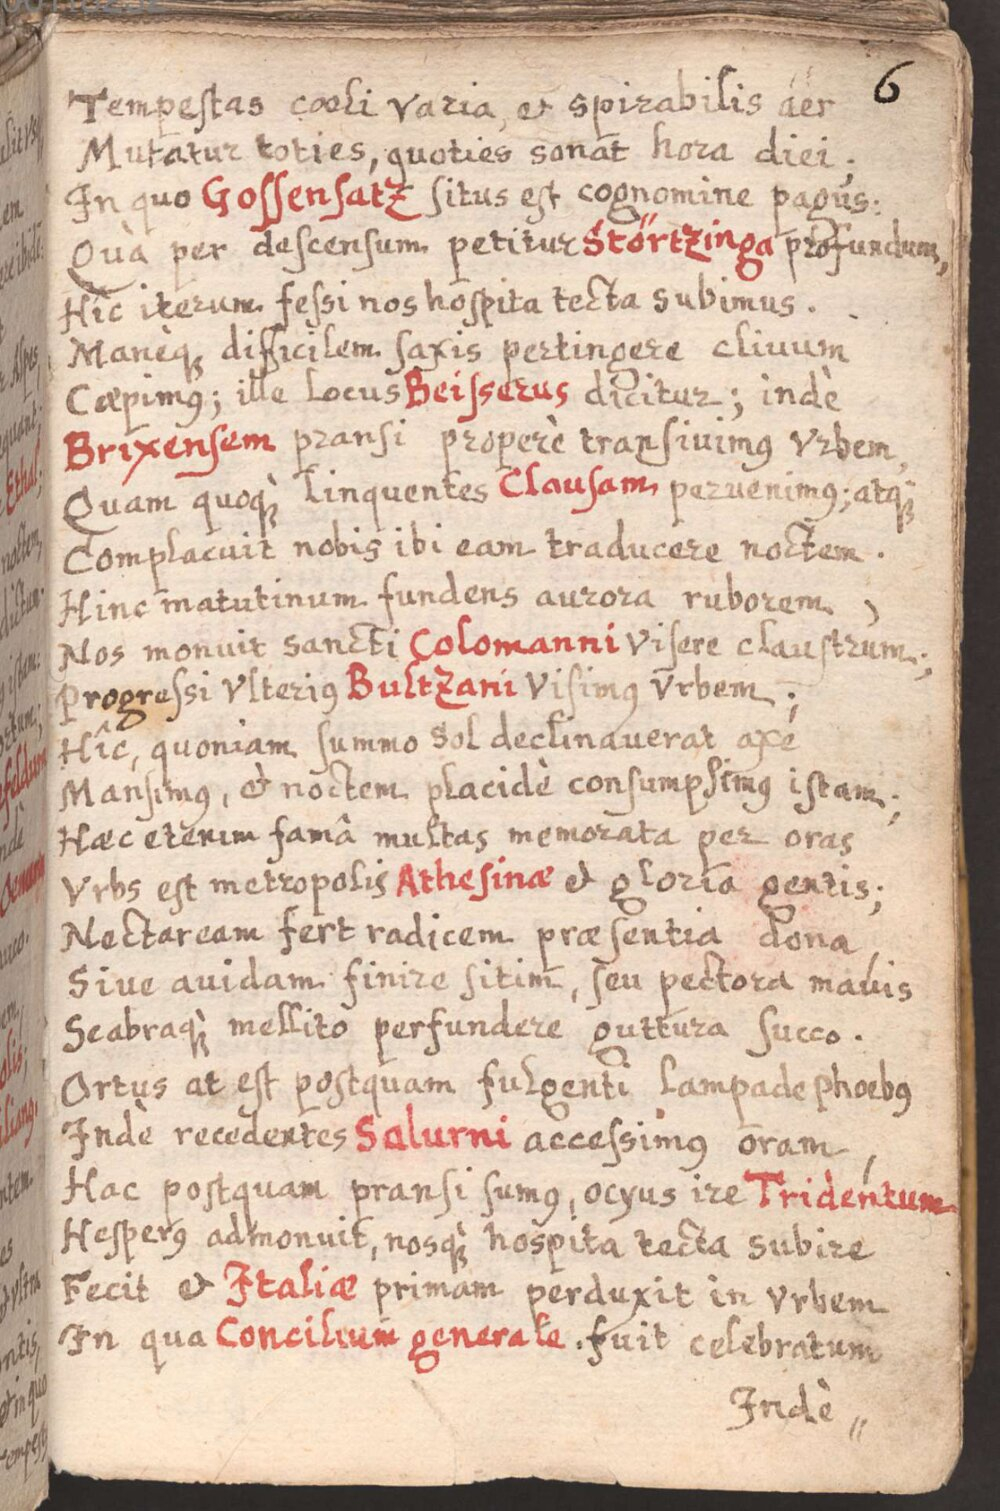 6
Tempeſtas cœli varia, et spirabilis äer
Mutatur toties, quoties sonat hora diei;
In quo Goſſenſatz ſitus eſt cognomine pagus:
Quà per deſcenſum petitur Störtzinga profundum,
Hîc iterum feſsi nos hoſpita tecta subimus.
Manèq; difficilem ſaxis pertingere cliuum
Cœpimus; ille locus Beiſserus dicitur; indè
Brixenſem pranſi properè tranſiuimus Vrbem,
Quam quoq; linquentes Clauſam peruenimus; atq;
Complacuit nobis ibi eam traducere noctem.
Hinc matutinum fundens aurora ruborem,
Nos monuit sancti Colomanni Viſere clauſtrum;
Progreſsi Vlterius Bultzani Viſimus Vrbem;
Hîc, quoniam ſummo Sol declinauerat axe
Manſimus, et noctem placidè conſumpſimus iſtam;
Hæc etenim famâ multas memorata per oras
Vrbs eſt metropolis Atheſinæ et gloria gentis;
Nectaream fert radicem præſentia dona,
Sive auidam finire ſitim, ſeu pectora mauis
Scabraq; mellito perfundere guttura ſucco.
Ortus at eſt poſtquam fulgenti lampade Phœbus
Indè recedentes Salurni acceſsimus oram,
Hac poſtquam pranſi ſumus, ocyus ire Tridentum
Heſperus admonuit, nosq; hoſpita tecta subire
Fecit et Italiæ primam perduxit in Vrbem
In qua Concilium generale. fuit celebratum
Indè